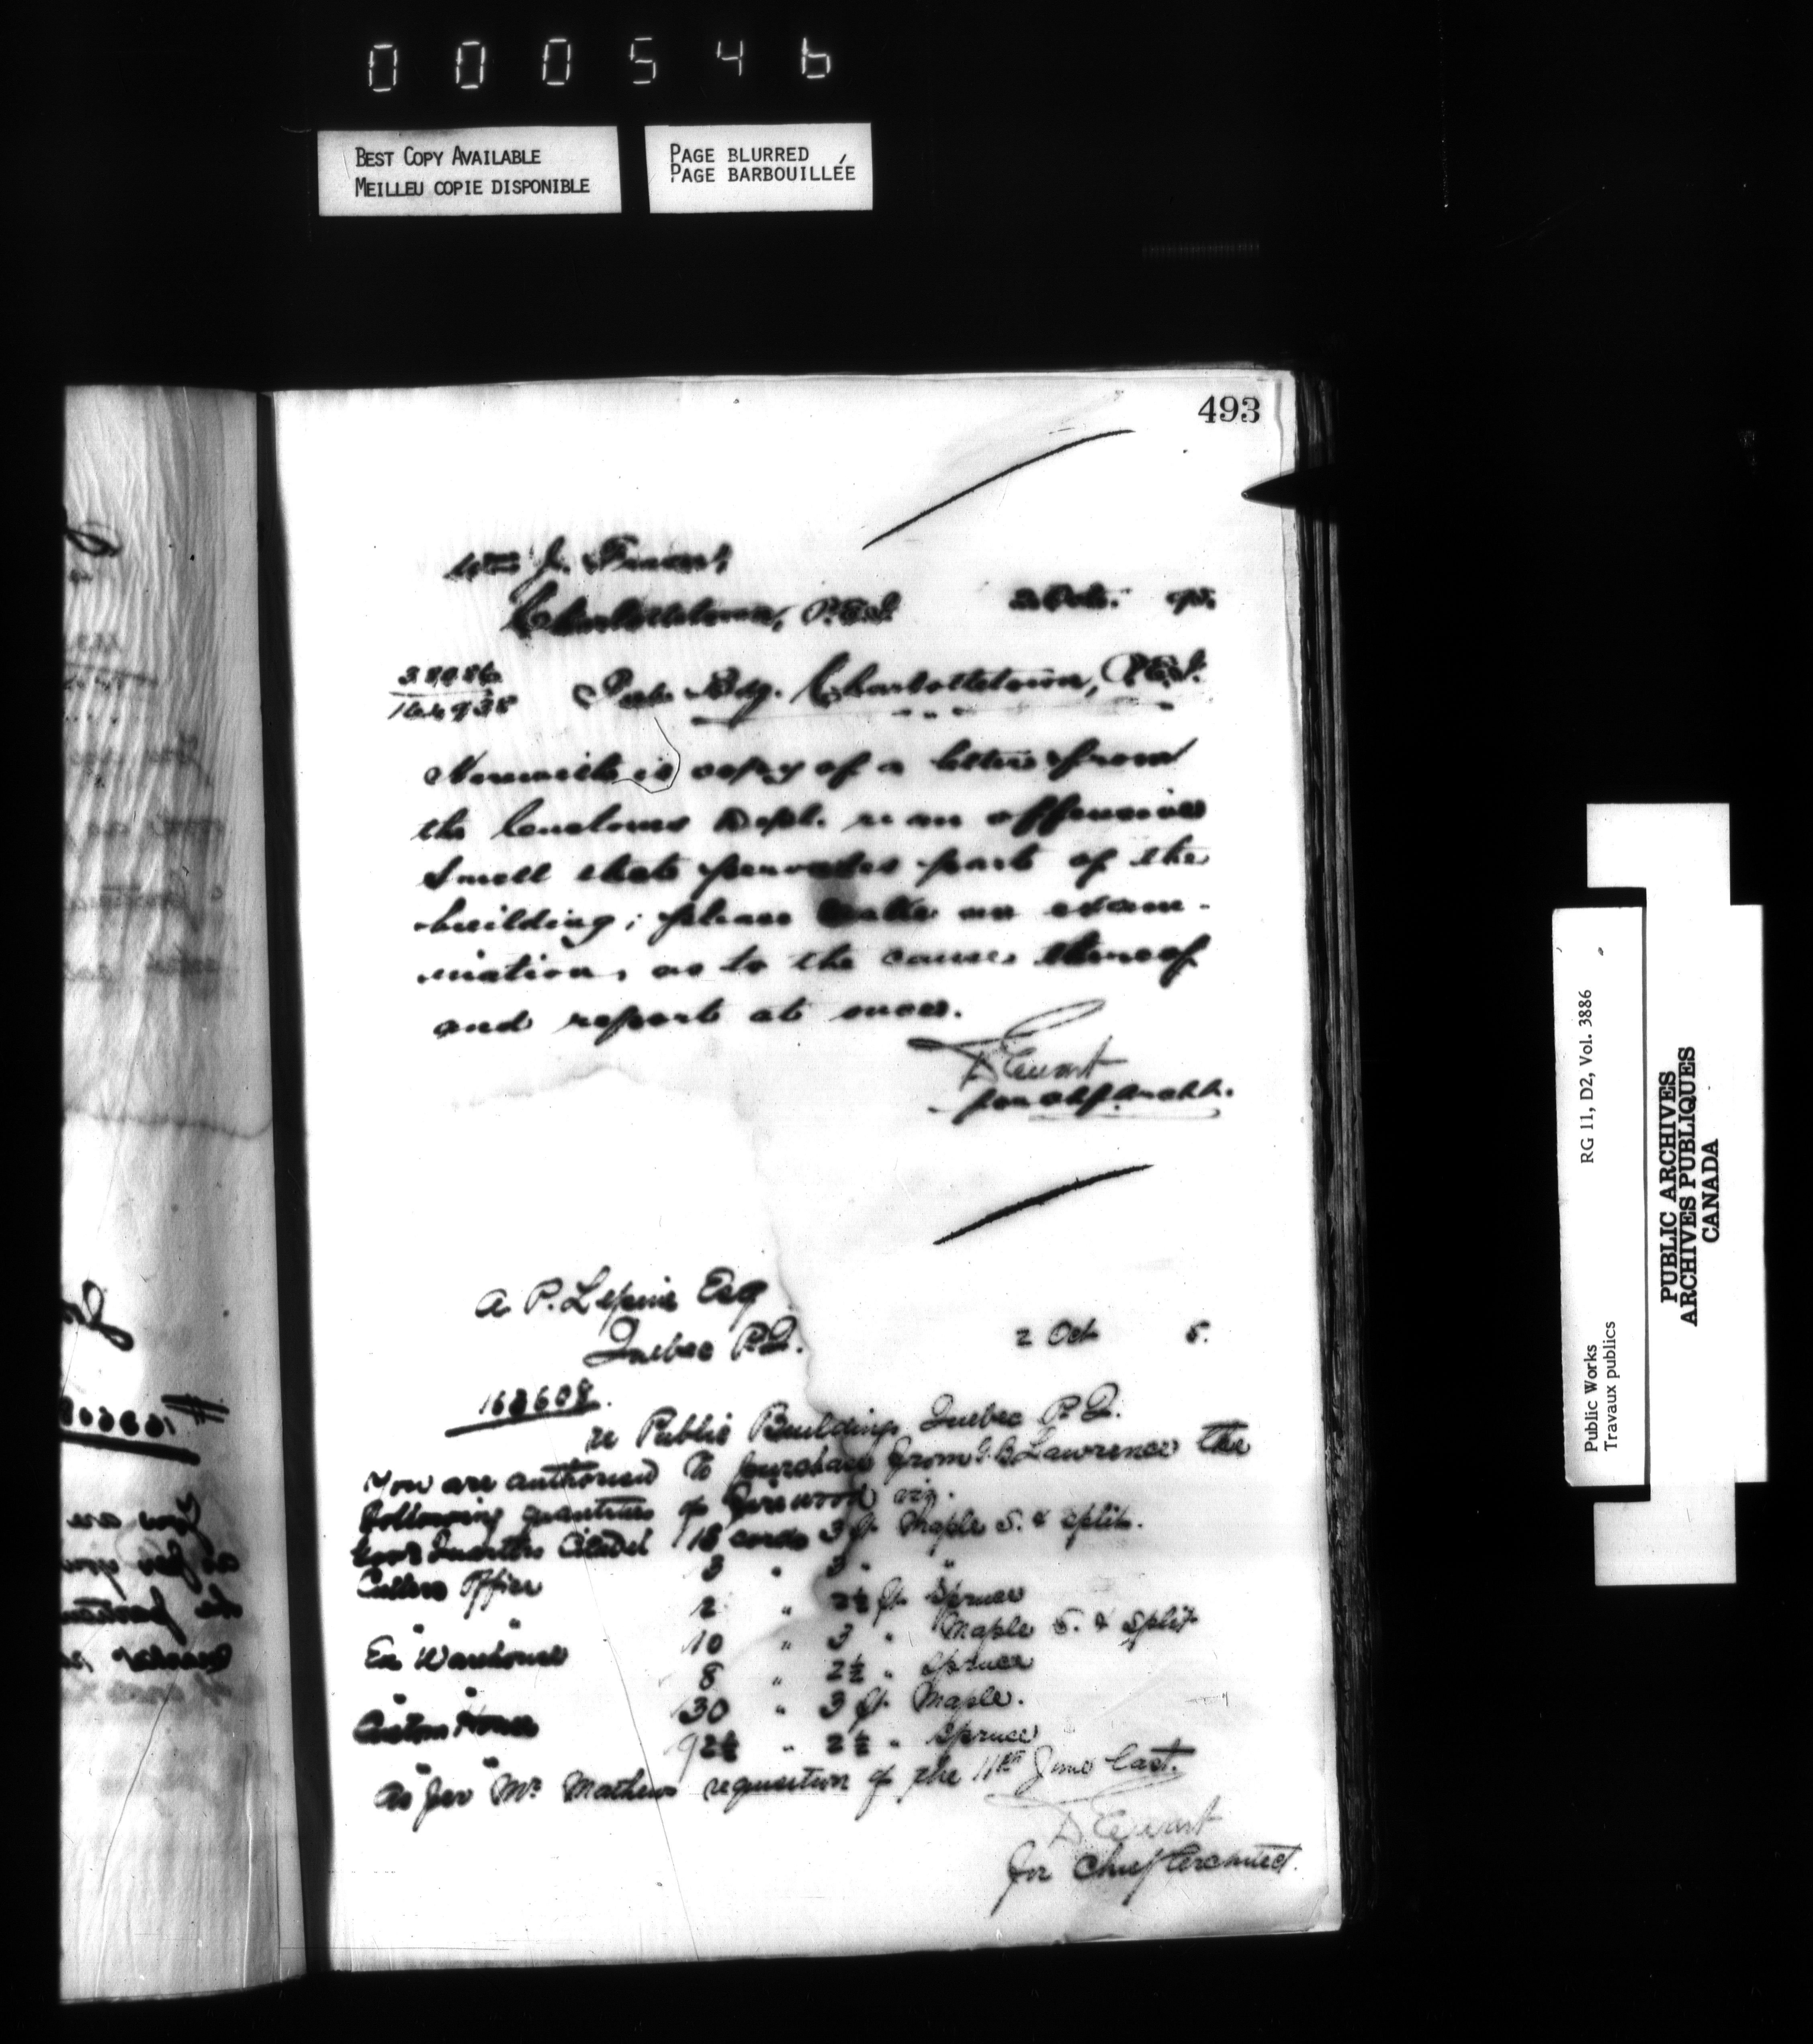 000546
BEST COPY AVAILABLE
MEILLEU COPIE DISPONIBLE
PAGE BLURRED
PAGE BARBOUILLÉE
493
Wm J.
Charlottetown, P.E.I. 2 Oct. 95.
Pub. Bdg. Charlottetown, P.E.I.
Herewith is copy of a letter from
the Customs Dept. re an offensive
smell that pervades part of the
building; please make an exam-
ination, as to the cause thereof
and report at once.
D Ewart
for chf. archt.
A. P. Lepine Esq
Quebec P.Q. 2 Oct 5.
163608.
re Public Buildings Quebec P.Q.
You are authorised to purchase from G. B. Lawrence the
following quantities of firewood viz.
Quarters Citadel 18 cords 3 ft. Maple S. & split.
Cullers Office 3 " 3 " "
2 " 2½ ft. Spruce
Ex. Warehouse 10 " 3 " Maple S. & split
" " 8 " 2½ " Spruce
Custom House 30 " 3 ft. Maple.
" " 92½ " 2½ " Spruce
as per Mr. Mathews requisition of the 11th June last.
D Ewart
for Chief Architect.
RG 11, D2, Vol. 3886
Public Works
Travaux publics
PUBLIC ARCHIVES
ARCHIVES PUBLIQUES
CANADA